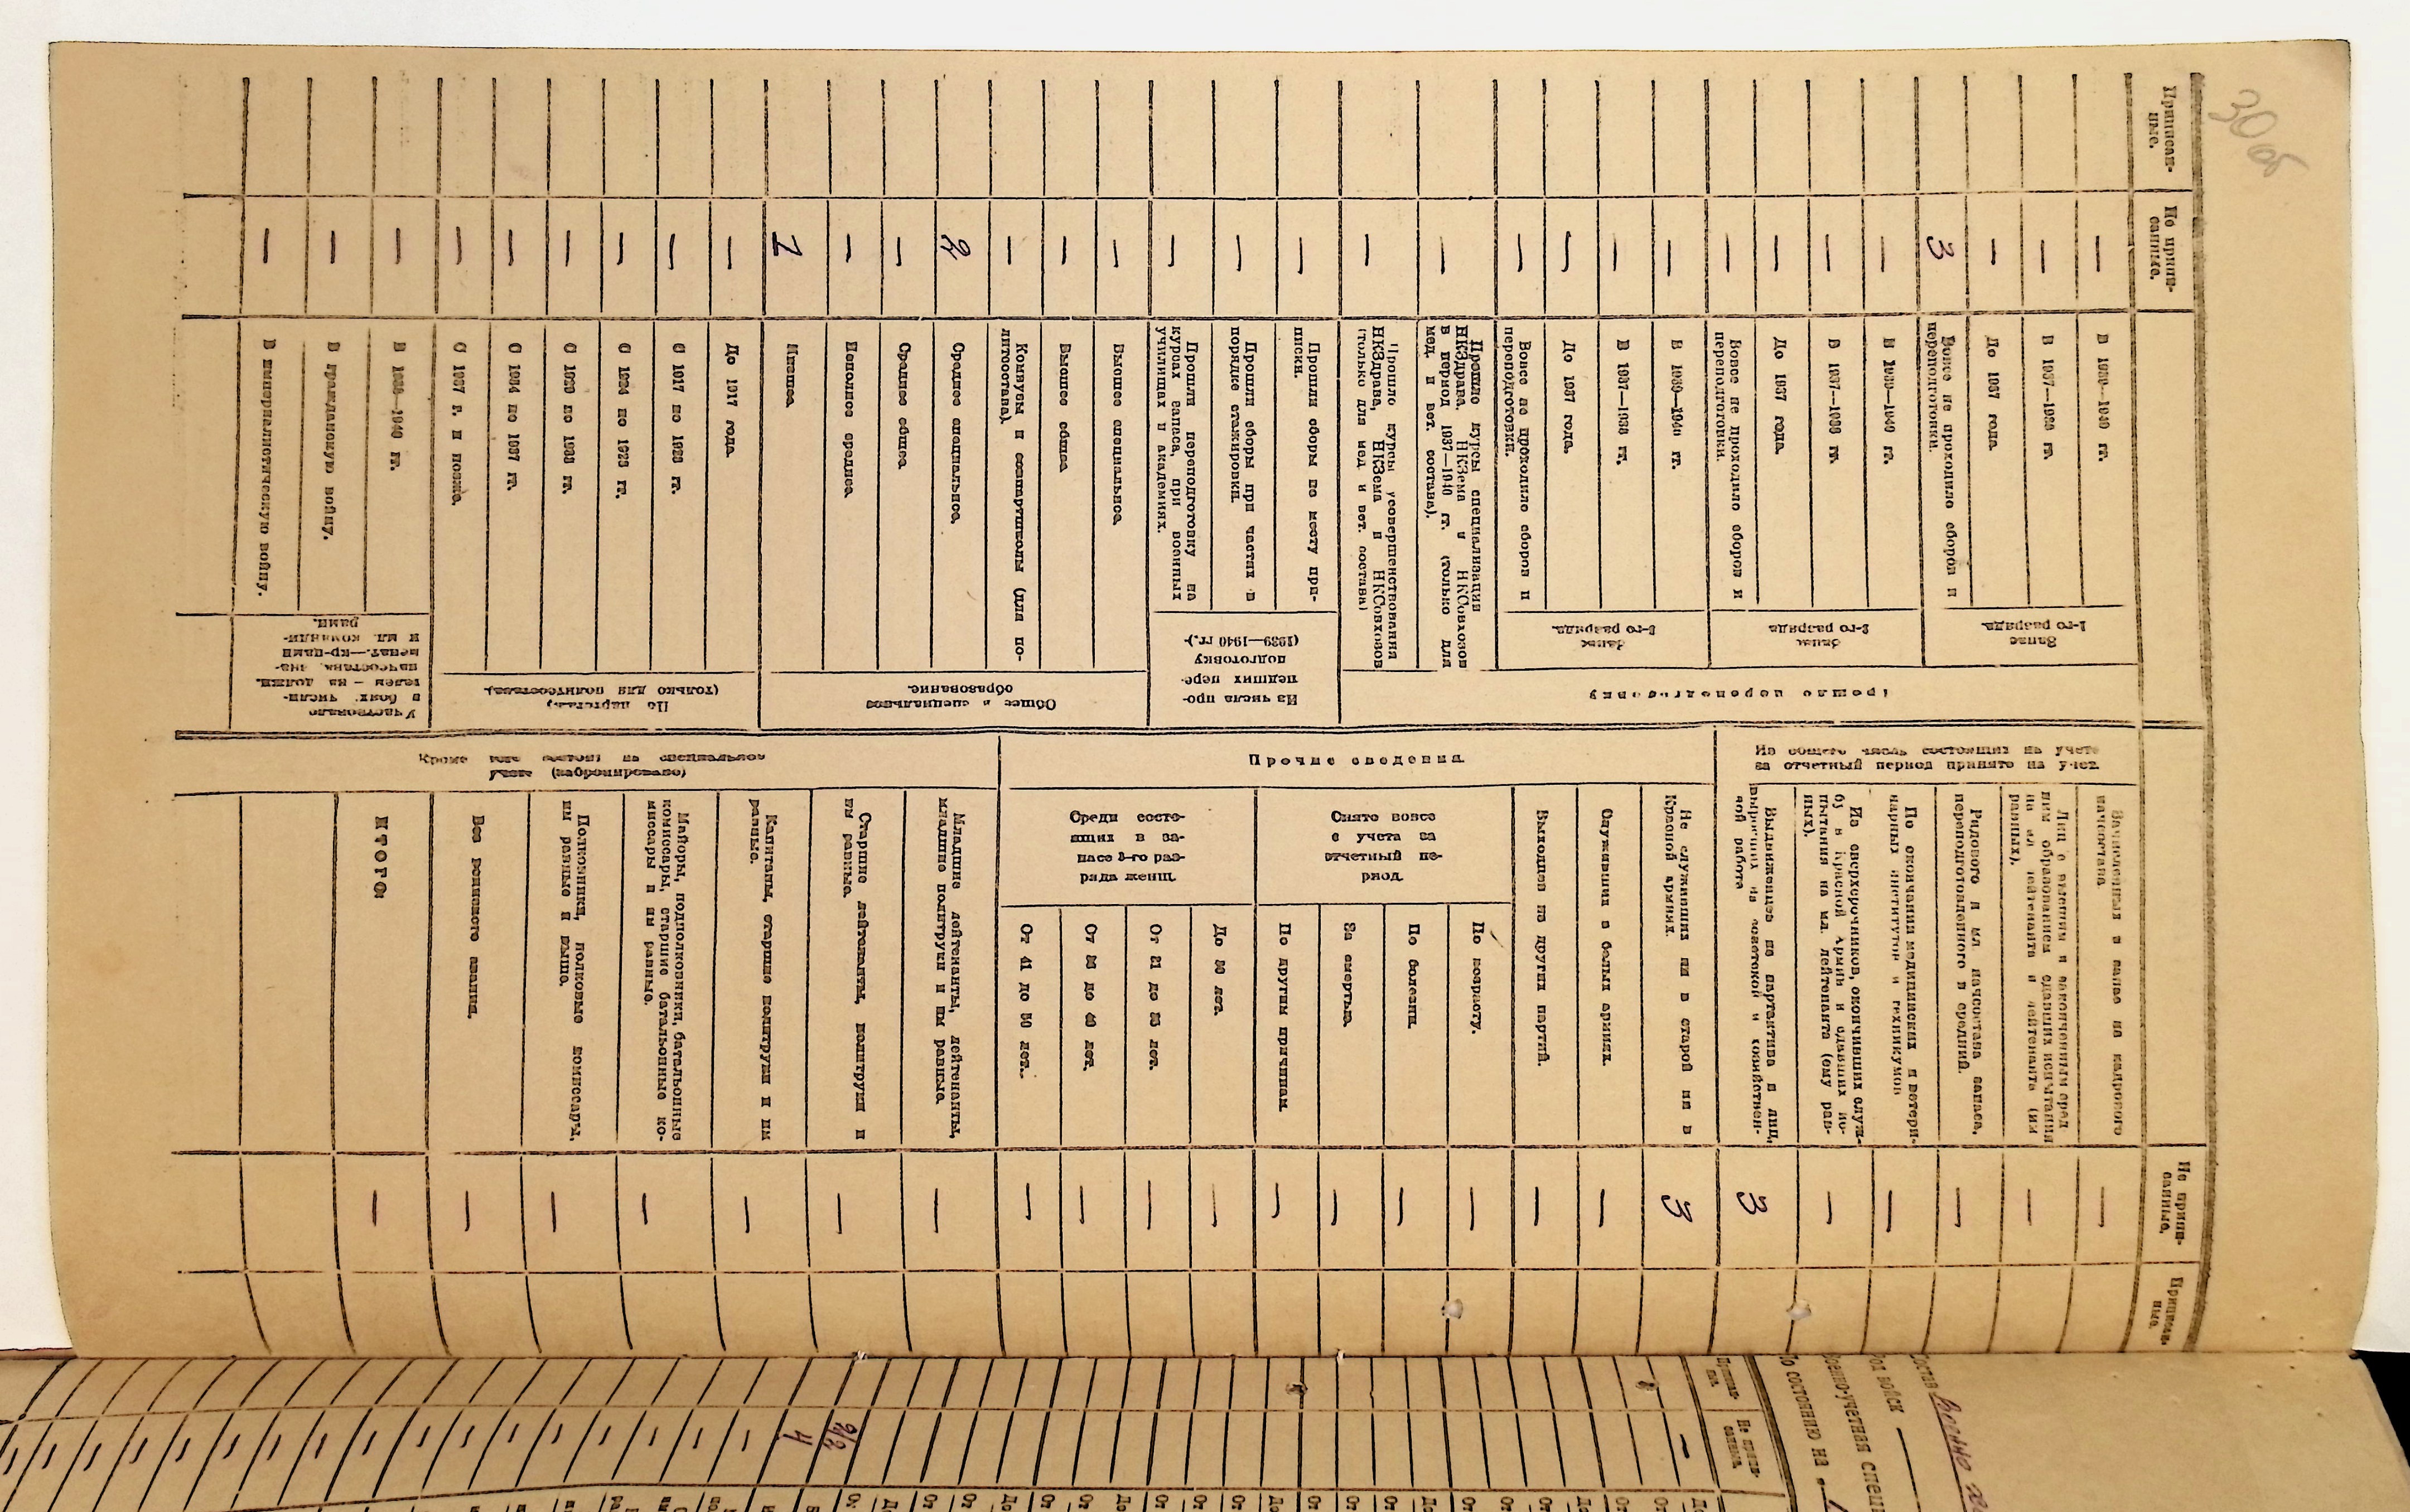 30 об
Приписан-
ные.
Не припи-
санные.
В 1939—1940 гг.
—
В 1937—1938 гг.
—
До 1937 года.
—
Вовсе не проходило сборов и
переподготовки.
3
Запас
1-го разряда.
В 1939—1940 гг.
—
В 1937—1938 гг.
—
До 1937 года.
—
Вовсе не проходило сборов и
переподготовки.
—
Запас
2-го разряда.
В 1939—1940 гг.
—
В 1937—1938 гг.
—
До 1937 года.
—
Вовсе не проходило сборов и
переподготовки.
—
Запас
3-го разряда.
Прошло курсы специализации
НКЗдрава, НКЗема и НКСовхозов
в период 1937—1940 гг. (только для
мед. и вет. состава).
—
Прошло курсы усовершенствования
НКЗдрава, НКЗема и НКСовхозов
(только для мед. и вет. состава)
—
Прошло переподготовку
Прошли сборы по месту при-
писки.
—
Прошли сборы при частях в
порядке стажировки.
—
Прошли переподготовку на
курсах запаса, при военных
училищах и академиях.
—
Из числа про-
шедших пере-
подготовку
(1939—1940 гг.).
Высшее специальное.
—
Высшее общее.
—
Комвузы и совпартшколы (для по-
литсостава).
—
Среднее специальное.
2
Среднее общее.
—
Неполное среднее.
—
Низшее.
1
Общее и специальное
образование.
До 1917 года.
—
С 1917 по 1923 гг.
—
С 1924 по 1928 гг.
—
С 1929 по 1933 гг.
—
С 1934 по 1937 гг.
—
С 1937 г. и позже.
—
По партстажу
(только для политсостава).
В 1938—1940 гг.
—
В гражданскую войну.
—
В империалистическую войну.
—
Участвовало
в боях: числи-
телем — на должн.
начсостава, зна-
менат.—кр-цами
и мл. команди-
рами.
Не припи-
санные.
Приписан-
ные.
Из общего числа состоящих на учете
за отчетный период принято на учет.
Зачисленных в запас из кадрового
начсостава
—
Лиц с высшим и законченным сред
ним образованием сдавших испытания
на мл. лейтенанта и лейтенанта (им
равных).
—
Рядового и мл. начсостава запаса,
переподготовленного в средний.
—
По окончании медицинских и ветери-
нарных институтов и техникумов
—
Из сверхсрочников, окончивших служ-
бу в Красной Армии и сдавших ис-
пытания на мл. лейтенанта (ему рав-
ных).
—
Выдвиженцев из партактива и лиц,
выросших на советской и хозяйствен-
ной работе
3
Прочие сведения.
Не служивших ни в старой ни в
Красной армиях.
3
Служивших в белых армиях.
—
Выходцев из других партий.
—
Снято вовсе
с учета за
отчетный пе-
риод.
По возрасту.
—
По болезни.
—
За смертью.
—
По другим причинам.
—
Среди состо-
ящих в за-
пасе 3-го раз-
ряда женщ.
До 30 лет.
—
От 31 до 35 лет.
—
От 36 до 40 лет.
—
От 41 до 50 лет.
—
Кроме того состоит на специальном
учете (забронировано)
Младшие лейтенанты, лейтенанты,
младшие политруки и им равные.
—
Старшие лейтенанты, политруки и
им равные.
—
Капитаны, старшие политруки и им
равные.
—
Майоры, подполковники, батальонные
комиссары, старшие батальонные ко-
миссары и им равные.
—
Полковники, полковые комиссары,
им равные и выше.
—
Без воинского звания.
—
ИТОГО:
—
Состав Военно-хо
Род войск —
Военно-учетная специ
По состоянию на «1
Не припи-
санные.
—
2/2
4